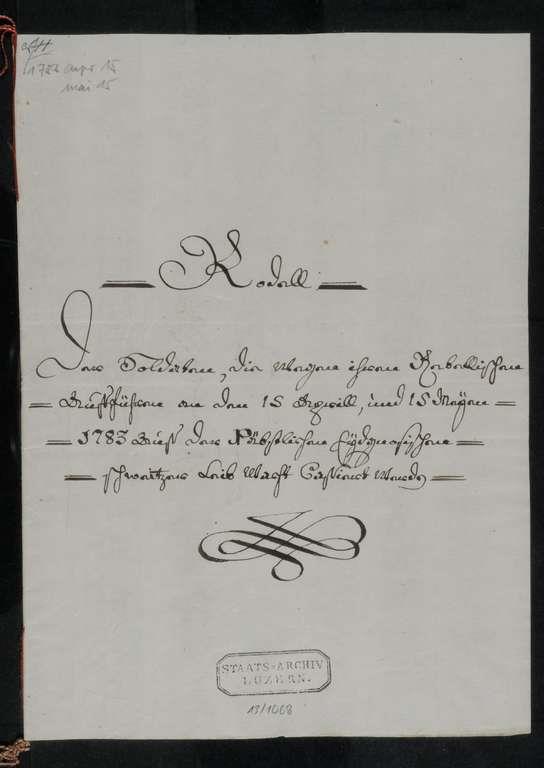 1783 apr 15
mai 15
Rodell
Der Soldaten, die Wegen ihren Rebellischen
Aufführen an den 15 Aprill, und 15 Mayen
1783 Aus der Päbstlichen Eydgnosischen
schweitzer Leib Wacht Cassiert Worden
STAATS-ARCHIV
LUZERN.
13/1068